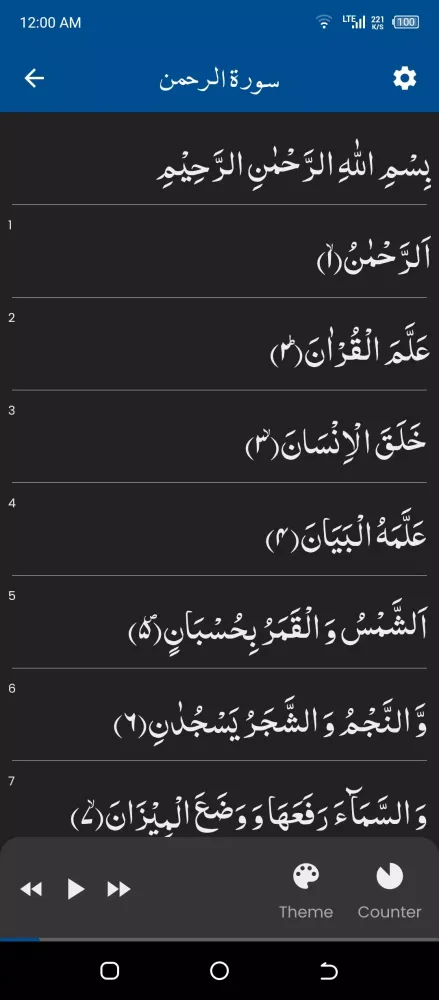 12:00 AM LTE 221 K/S 100
سورة الرحمن
بِسْمِ اللّٰهِ الرَّحْمٰنِ الرَّحِيْمِ
1
اَلرَّحْمٰنُۙ(۱)
2
عَلَّمَ الْقُرْاٰنَؕ(۲)
3
خَلَقَ الْاِنْسَانَۙ(۳)
4
عَلَّمَهُ الْبَیَانَ(۴)
5
اَلشَّمْسُ وَ الْقَمَرُ بِحُسْبَانٍ۪(۵)
6
وَّ النَّجْمُ وَ الشَّجَرُ یَسْجُدٰنِ(۶)
7
وَ السَّمَآءَ رَفَعَهَا وَ وَضَعَ الْمِیْزَانَۙ(۷)
Theme Counter